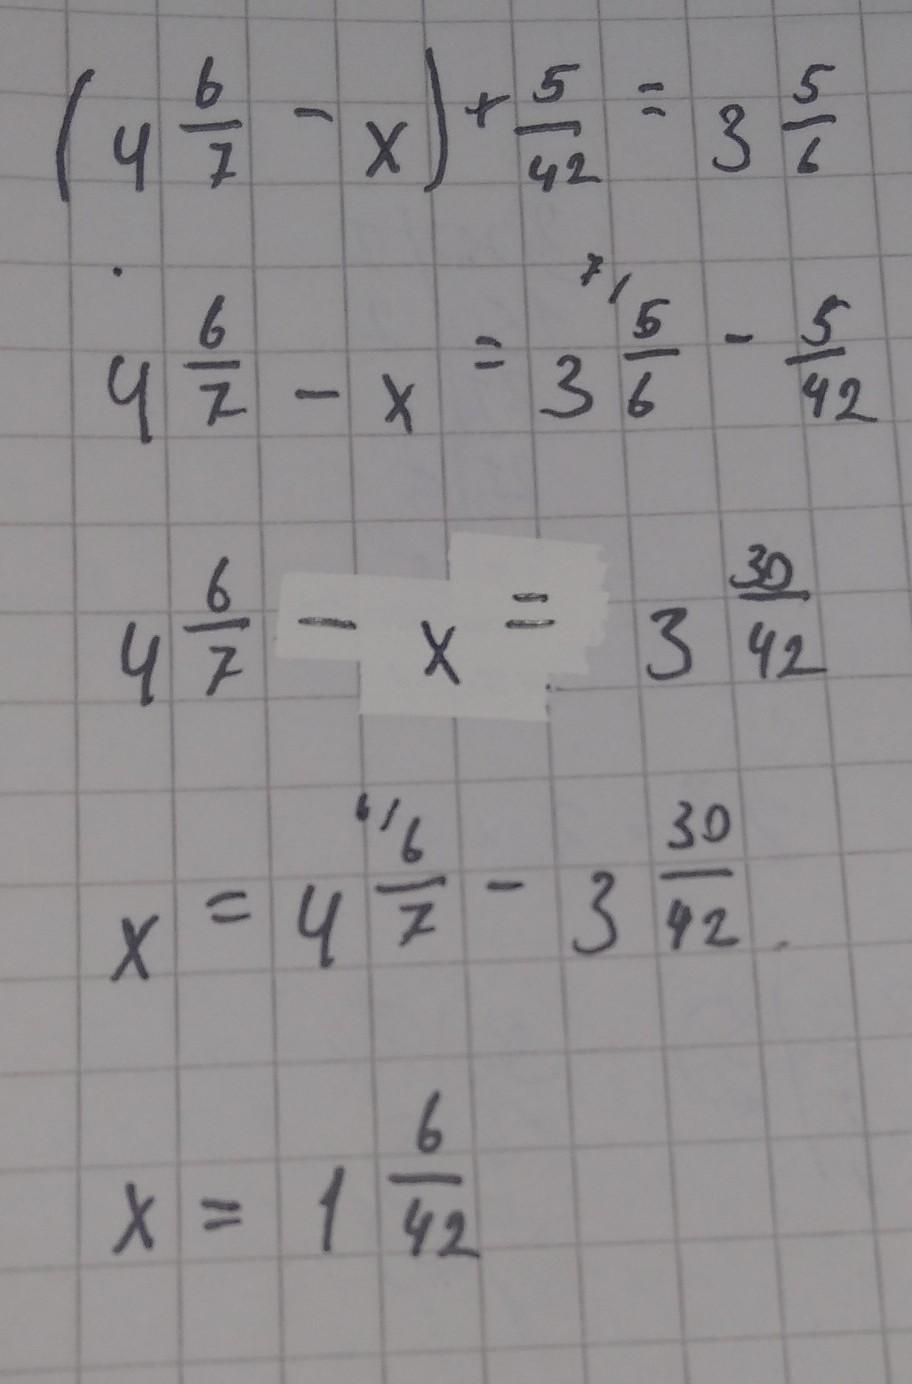 (4 6/7 - x) + 5/42 = 3 5/6
4 6/7 - x = 3 7/ 5/6 - 5/42
4 6/7 - x = 3 30/42
x = 4 6/ 6/7 - 3 30/42
x = 1 6/42